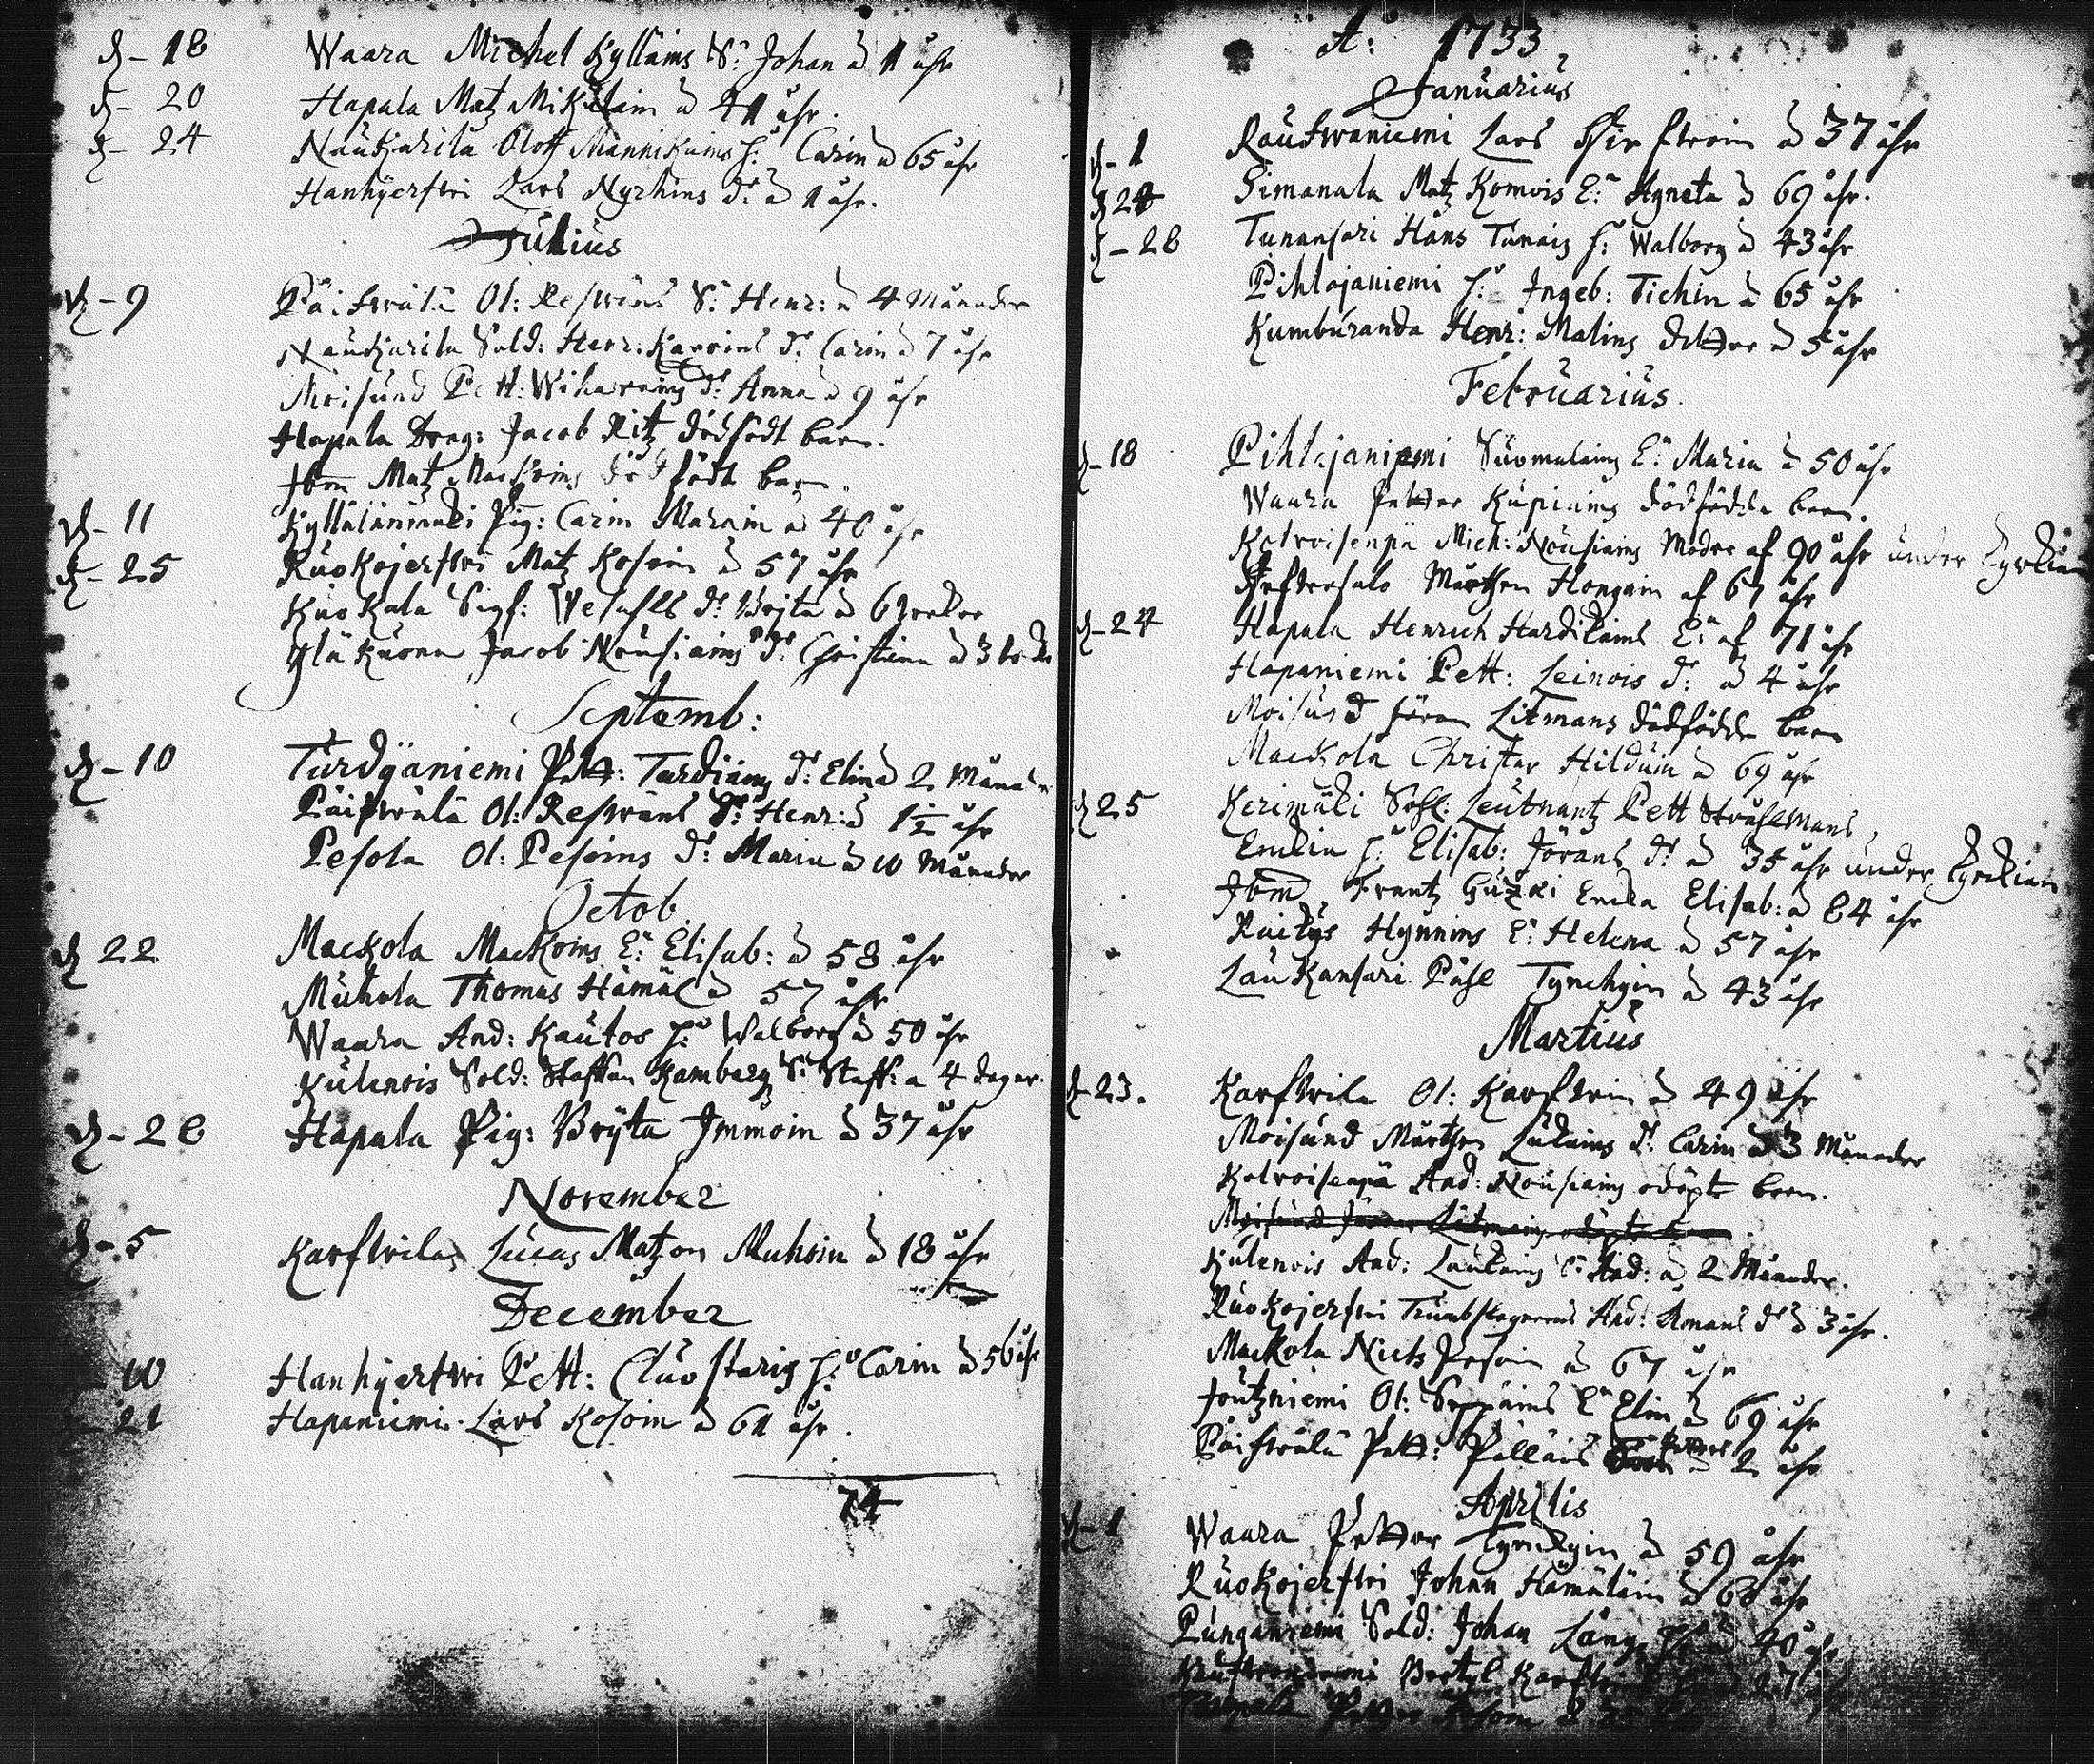 d – 18 Waara Michel Kylläins S: Johan a 1 åhr
d – 20 Hapala Matz Mikulain a 41 åhr.
d – 24 Naukarila Oloff Mannikains h: Carin a 65 åhr
Hanhijerfwi Lars Nyrhins d: a 1 åhr.
Julius
d – 9 Päifwälä Ol: Reswäns S: Henr: a 4 Månader
Naukarila Sold: Henr: Karvins d: Carin a 7 åhr
Moisund Pett: Wiharains d: Anna a 9 åhr
Hapala Drag: Jacob Ritz dödfödt barn.
Jbm Matz Mackoins dödfödt barn.
d – 11 Kyllälänmäki Pig: Carin Marain a 40 åhr
d – 25 Ruokojerfwi Matz Kosoin a 57 åhr
Kuokala Sigf: d: Brjta a 6 weckor
Jacob Nousiains d: Christina a 3
Septemb:
d – 10 Turdyäniemi Pett: Turdiains d: Elin a 2 Månader
Päifwälä Ol: Reswäns S: Henr: a 1½ åhr
Pesola Ol: Pesoins d: Maria a 10 Månader
Octob
d 22 Mackola Mackoins E: Elisab: a 58 åhr
Muhola Thomas Hämäl a 57 åhr
Waara And: Kautos h: Walborg a 50 åhr
Kulenois Sold: Staffan Kamberg S: Staff: a 4 dagar.
d – 28 Hapala Pig: Brÿta Jmmoin a 37 åhr
November
d – 5 Karfwila Lucas Matzon Muhoin a 18 åhr
December
10 Hanhijerfwi Pett: h: Carin a 56 åhr
21 Hapaniemi Lars Kosoin a 61 åhr.
74
A: 1733
Januarius
d – 1 Rautwaniemi Lars a 37 åhr
d 24 Simanala Matz Komois E: Agneta a 69 åhr.
d – 28 Tunansari Hans Tunais h: Walborg a 43 åhr
Pihlajaniemi h: Ingeb: Tichin a 65 åhr
Kumburanda Henr: Malins dotter a 5 åhr
Februarius.
d – 18 Pihlajaniemi Suomalains E: Maria a 50 åhr
Waara Petter Kupiains dödfödde barn.
Kolvoisenpä Mich: Nousiains Moder af 90 åhr under Kyrkian
Mårthen Hongain af 67 åhr
d – 24 Hapala Henrich Hardikains E: af 71 åhr
Hapaniemi Pett: Leinois d: a 4 åhr
Moisund Jöran Litmans dödfödde barn
Mackola Christer Hilduin a 69 åhr
d 25 Kerimäki Sahl: Leutnantz Pett Stråhlmans,
Enckia h: Elisab: Jörans d: a 35 åhr under Kyrckian
Jbm Frantz Enka Elisab: a 84 åhr
Raikys Hynnins E: Helena a 57 åhr
Laukansari Påhl Tynckyin a 43 åhr
Martius
d 23. Karfwila Ol: Karfwin a 49 åhr
Moisund Mårthen Lukains d: Carin a 3 Månader
Kolvoisenpä And: Nousiains odöpte barn.
Moisund Jöran Litmains odöpte barn.
Kulenois And: Laukains S: And: a 2 Månader.
Ruokojerfwi Trumbslagarens And: Amans d: a 3 åhr.
Mackola Niels Pesoin a 67 åhr
Joutzniemi Ol: Seppäins E: Elin a 69 åhr
Päifwälä Pett: Pelläis a 2 åhr
Aprilis
d – 1 Waara Petter Tynckyin a 59 åhr
Ruokojerfwi Johan Hämäläin a 68 åhr
Punganiemi Sold: Johan Lång a 40 åhr
Bertil